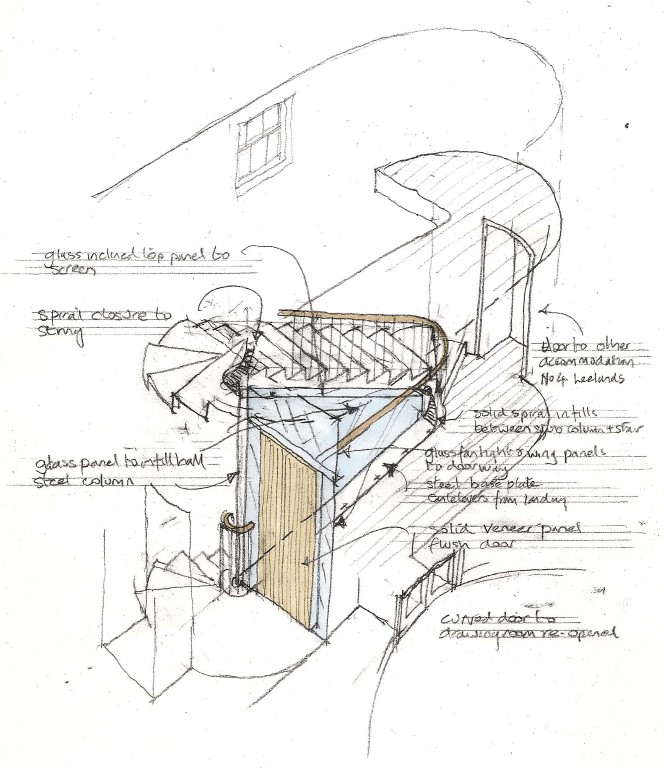 glass inclined top panel to
screen
spiral closure to
string
door to other
accommodation
No 4 Leelands
solid spiral infills
between stub column + stair
glass fanlight & wing panels
to doorway
steel base plate
cantelevers from landing
glass panel to infill hall
steel column
solid veneer panel
flush door
curved door to
drawing room re-opened